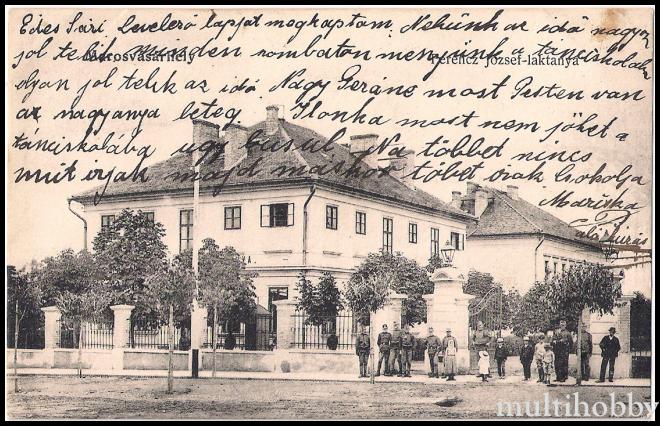 Edes Sári. Levelező lapját megkaptam. Nekünk az idő nagyon
jol telik minden szombaton megyünk a tánciskolába
Marosvásárhely
Ferencz József-laktanya
olyan jol telik az idő. Nagy Feránc most Pesten van
az nagyanya beteg. Ilonka most nem jöhet a
tánciskolába ugy búsul. Na többet nincs
mit irjak majd máskor többet irok Csokolja
Máriska
multihobby